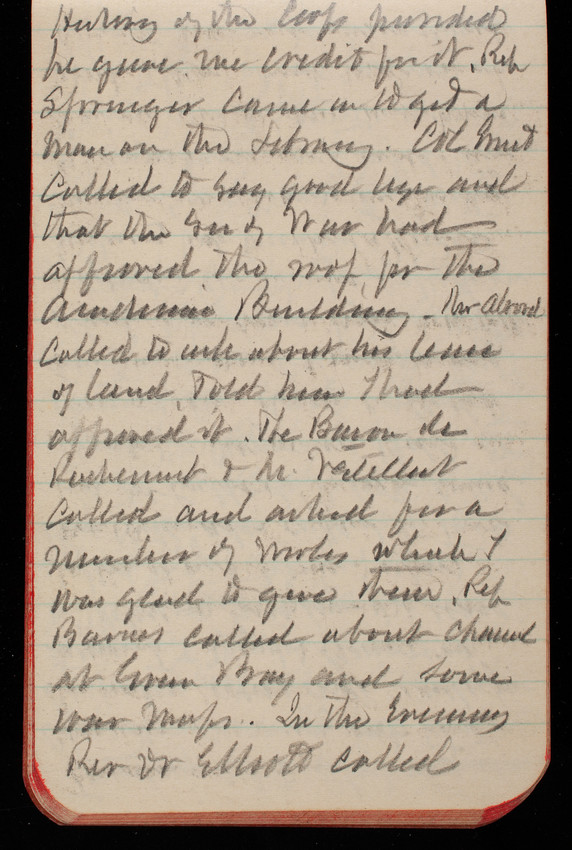 History of the Corps provided
he gave me credit for it. Rep
Springer came in to get a
man on the Library. Col Ernst
called to say good bye and
that the Sec of War had
approved the roof for the
Academic Building.
called to ask about his lease
of land. Told him I had
approved it. The Baron de
Rochemont & Mr.
called and asked for a
number of books which I
was glad to give them. Rep
Barnes called about channel
at Green Bay and some
war maps. In the Evening
Rev Dr Elliott called